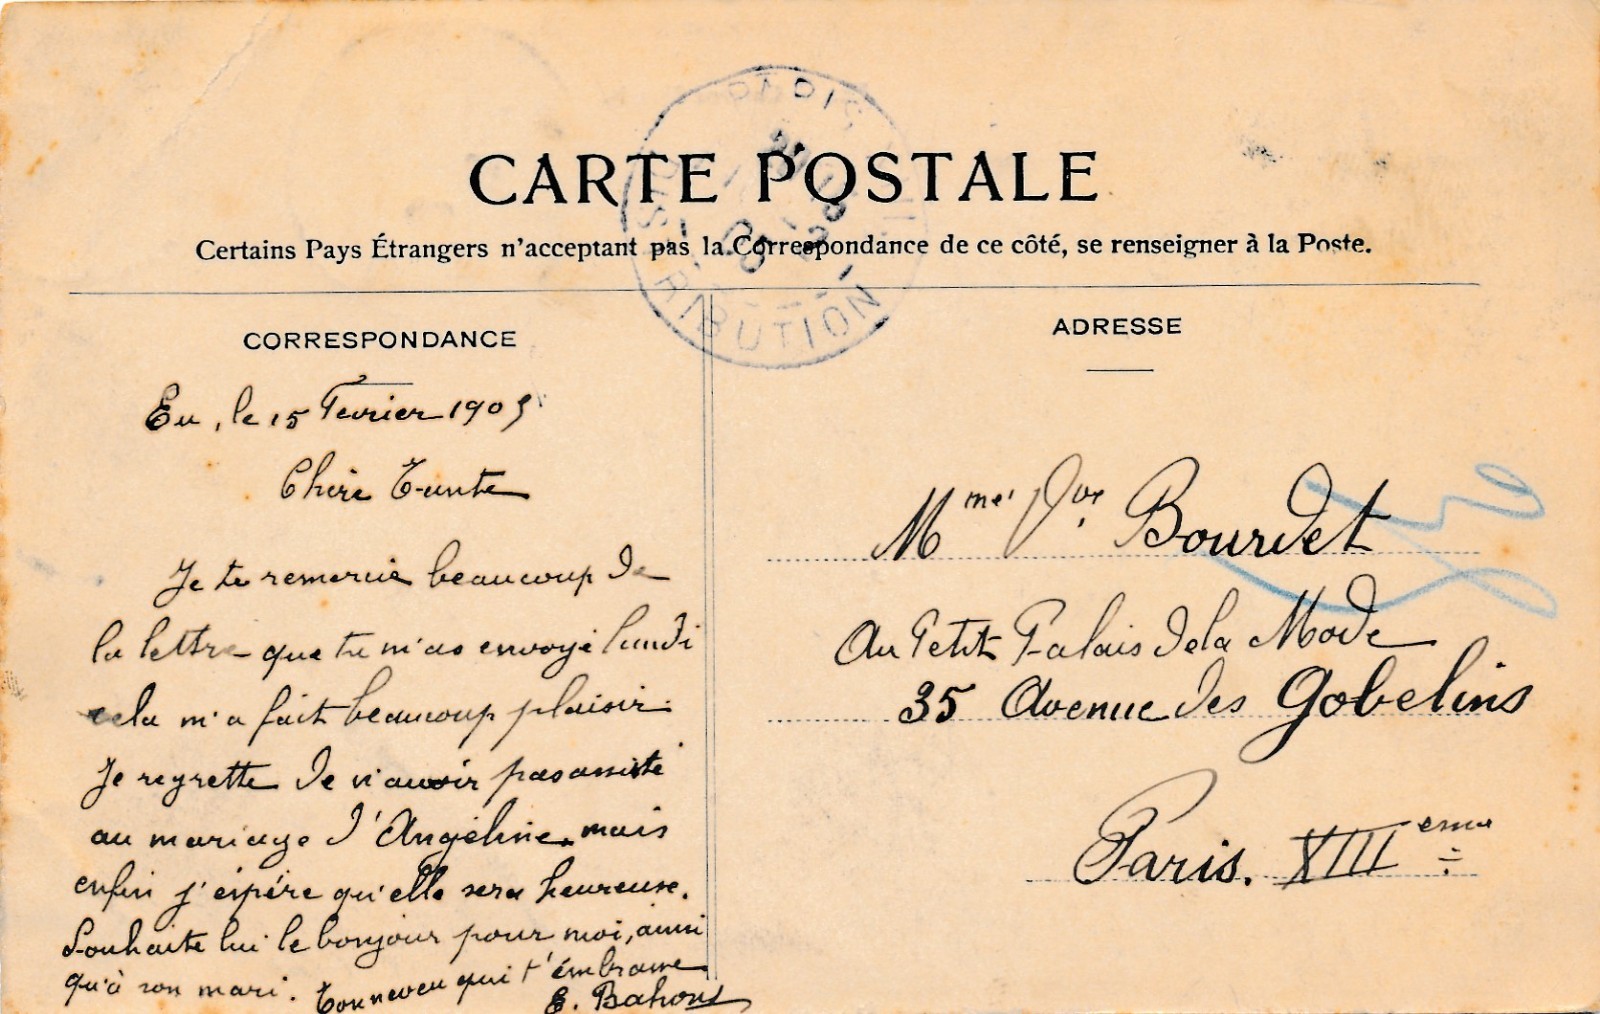 CARTE POSTALE
Certains Pays Étrangers n'acceptant pas la Correspondance de ce côté, se renseigner à la Poste.
PARIS
DISTRIBUTION
CORRESPONDANCE
Eu, le 15 Fevrier 1905
Chère Tante
Je te remercie beaucoup de
la lettre que tu m'as envoyé lundi
cela m'a fait beaucoup plaisir.
Je regrette de n'avoir pas assisté
au mariage d'Angèline. mais
enfin j'éspére qu'elle sera heureuse.
Souhaite lui le bonjour pour moi, ainsi
qu'à son mari. Ton neveu qui t'émbrasse
E. Bahous
ADRESSE
Mme Vve Bourdet
Au Petit Palais de la Mode
35 Avenue des Gobelins
Paris. XIIIeme